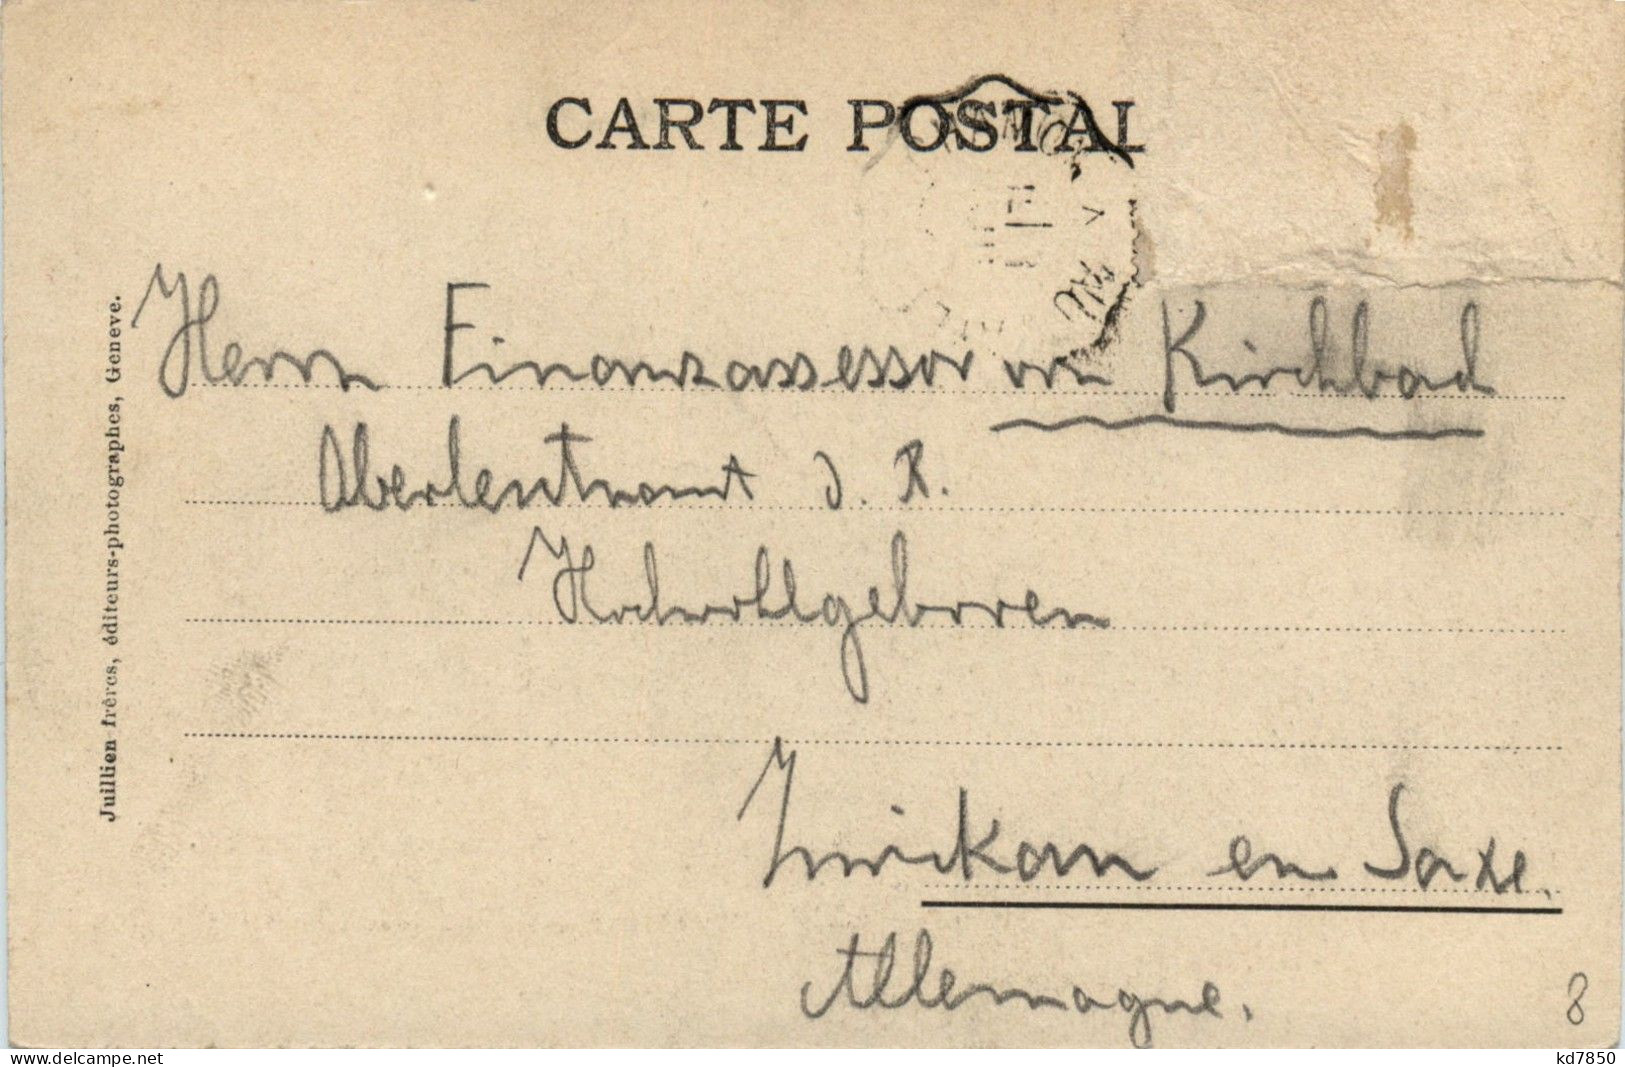 CARTE POSTAL
Herrn Finanzassessor von Kirchbach
Oberleutnant d. R.
Hochwohlgeboren
Zwickau en Saxe.
Allemagne.
Juillien frères, éditeurs-photographes, Genève.
8
www.delcampe.net
kd7850